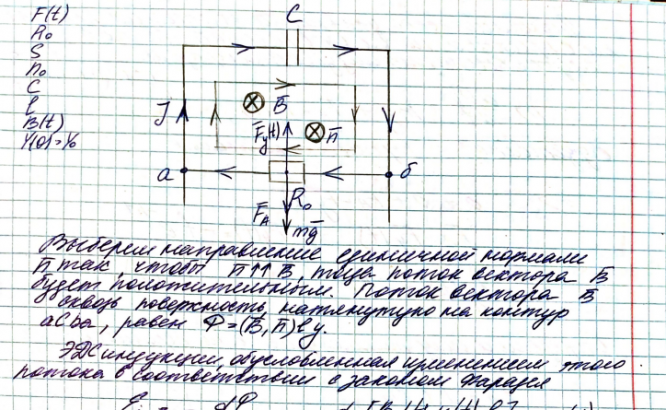 F(t)
R₀
S
n₀
C
l
B(t)
Y(0)=Y₀
C
J
B̄
F̄y(t)
n̄
a
б
R₀
F̄A
mḡ
Выберем направление единичной нормали
n̄ так, чтобы n̄↑↑B̄, тогда поток вектора B̄
будет положительным. Поток вектора B̄
сквозь поверхность, натянутую на контур
aCбa, равен Ф=(B̄,n̄)ly.
ЭДС индукции, обусловленная изменением этого
потока в соответствии с законом Фарадея